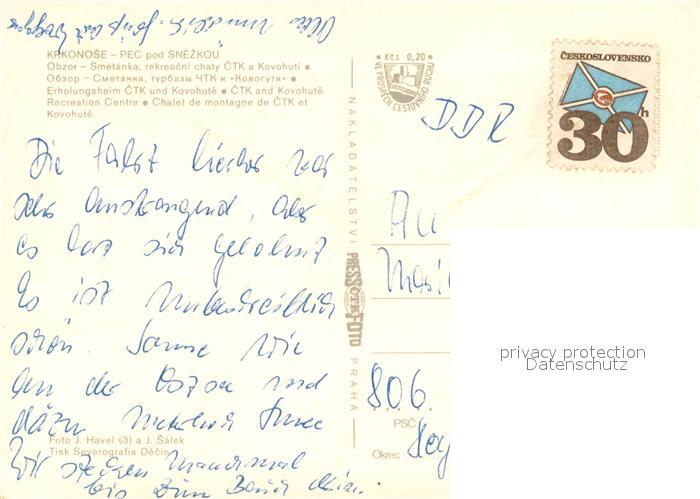 KRKONOŠE – PEC pod SNĚŽKOU
Obzor – Smetánka, rekreační chaty ČTK a Kovohuti ●
Обзор – Сметанка, турбазы ЧТК и «Новогути» ●
Erholungsheim ČTK und Kovohutě ● ČTK and Kovohutě
Recreation Centre ● Chalet de montagne de ČTK et
Kovohutě
Die Fahrt hierher war
sehr anstrengend, aber
es hat sich gelohnt
Es ist unbeschreiblich
schön. Sonne wie
an der Ostsee und
dazu Schnee
Wir stecken manchmal
bis zum Bauch drin.
Foto J. Havel (3) a J. Šálek
Tisk Severografia Děčín
NAKLADATELSTVÍ
PRESSFOTO
PRAHA
Kčs 0,20
VE PROSPĚCH CESTOVNÍHO RUCHU
ČESKOSLOVENSKO
30 h
DDR
806
PSČ
Okres:
privacy protection
Datenschutz